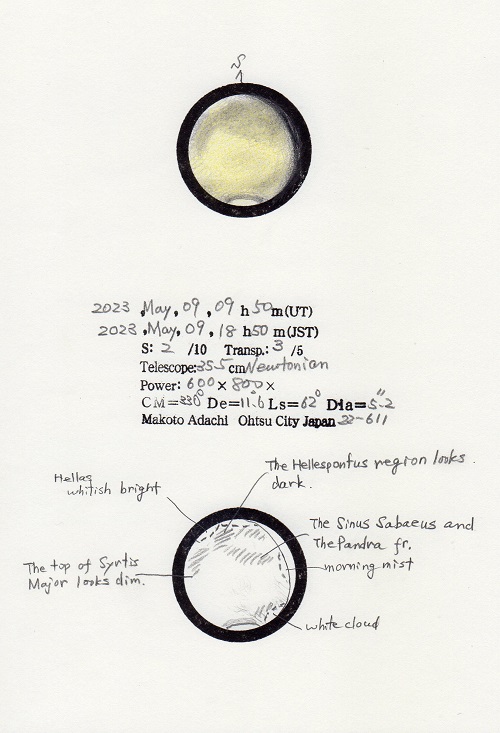 S
2023 ,May, 09, 09 h 50 m(UT)
2023 ,May, 09, 18 h50 m(JST)
S: 2 /10 Transp.: 3 /5
Telescope:35.5cm Newtonian
Power: 600× 800×
CM=330° De=11.6° Ls=62° Dia=5".2
Makoto Adachi Ohtsu City Japan 22-611
Hellas
whitish bright
The Hellespontus region looks
dark.
The Sinus Sabaeus and
The Pandra fr.
morning mist
The top of Syrtis
Major looks dim.
white cloud